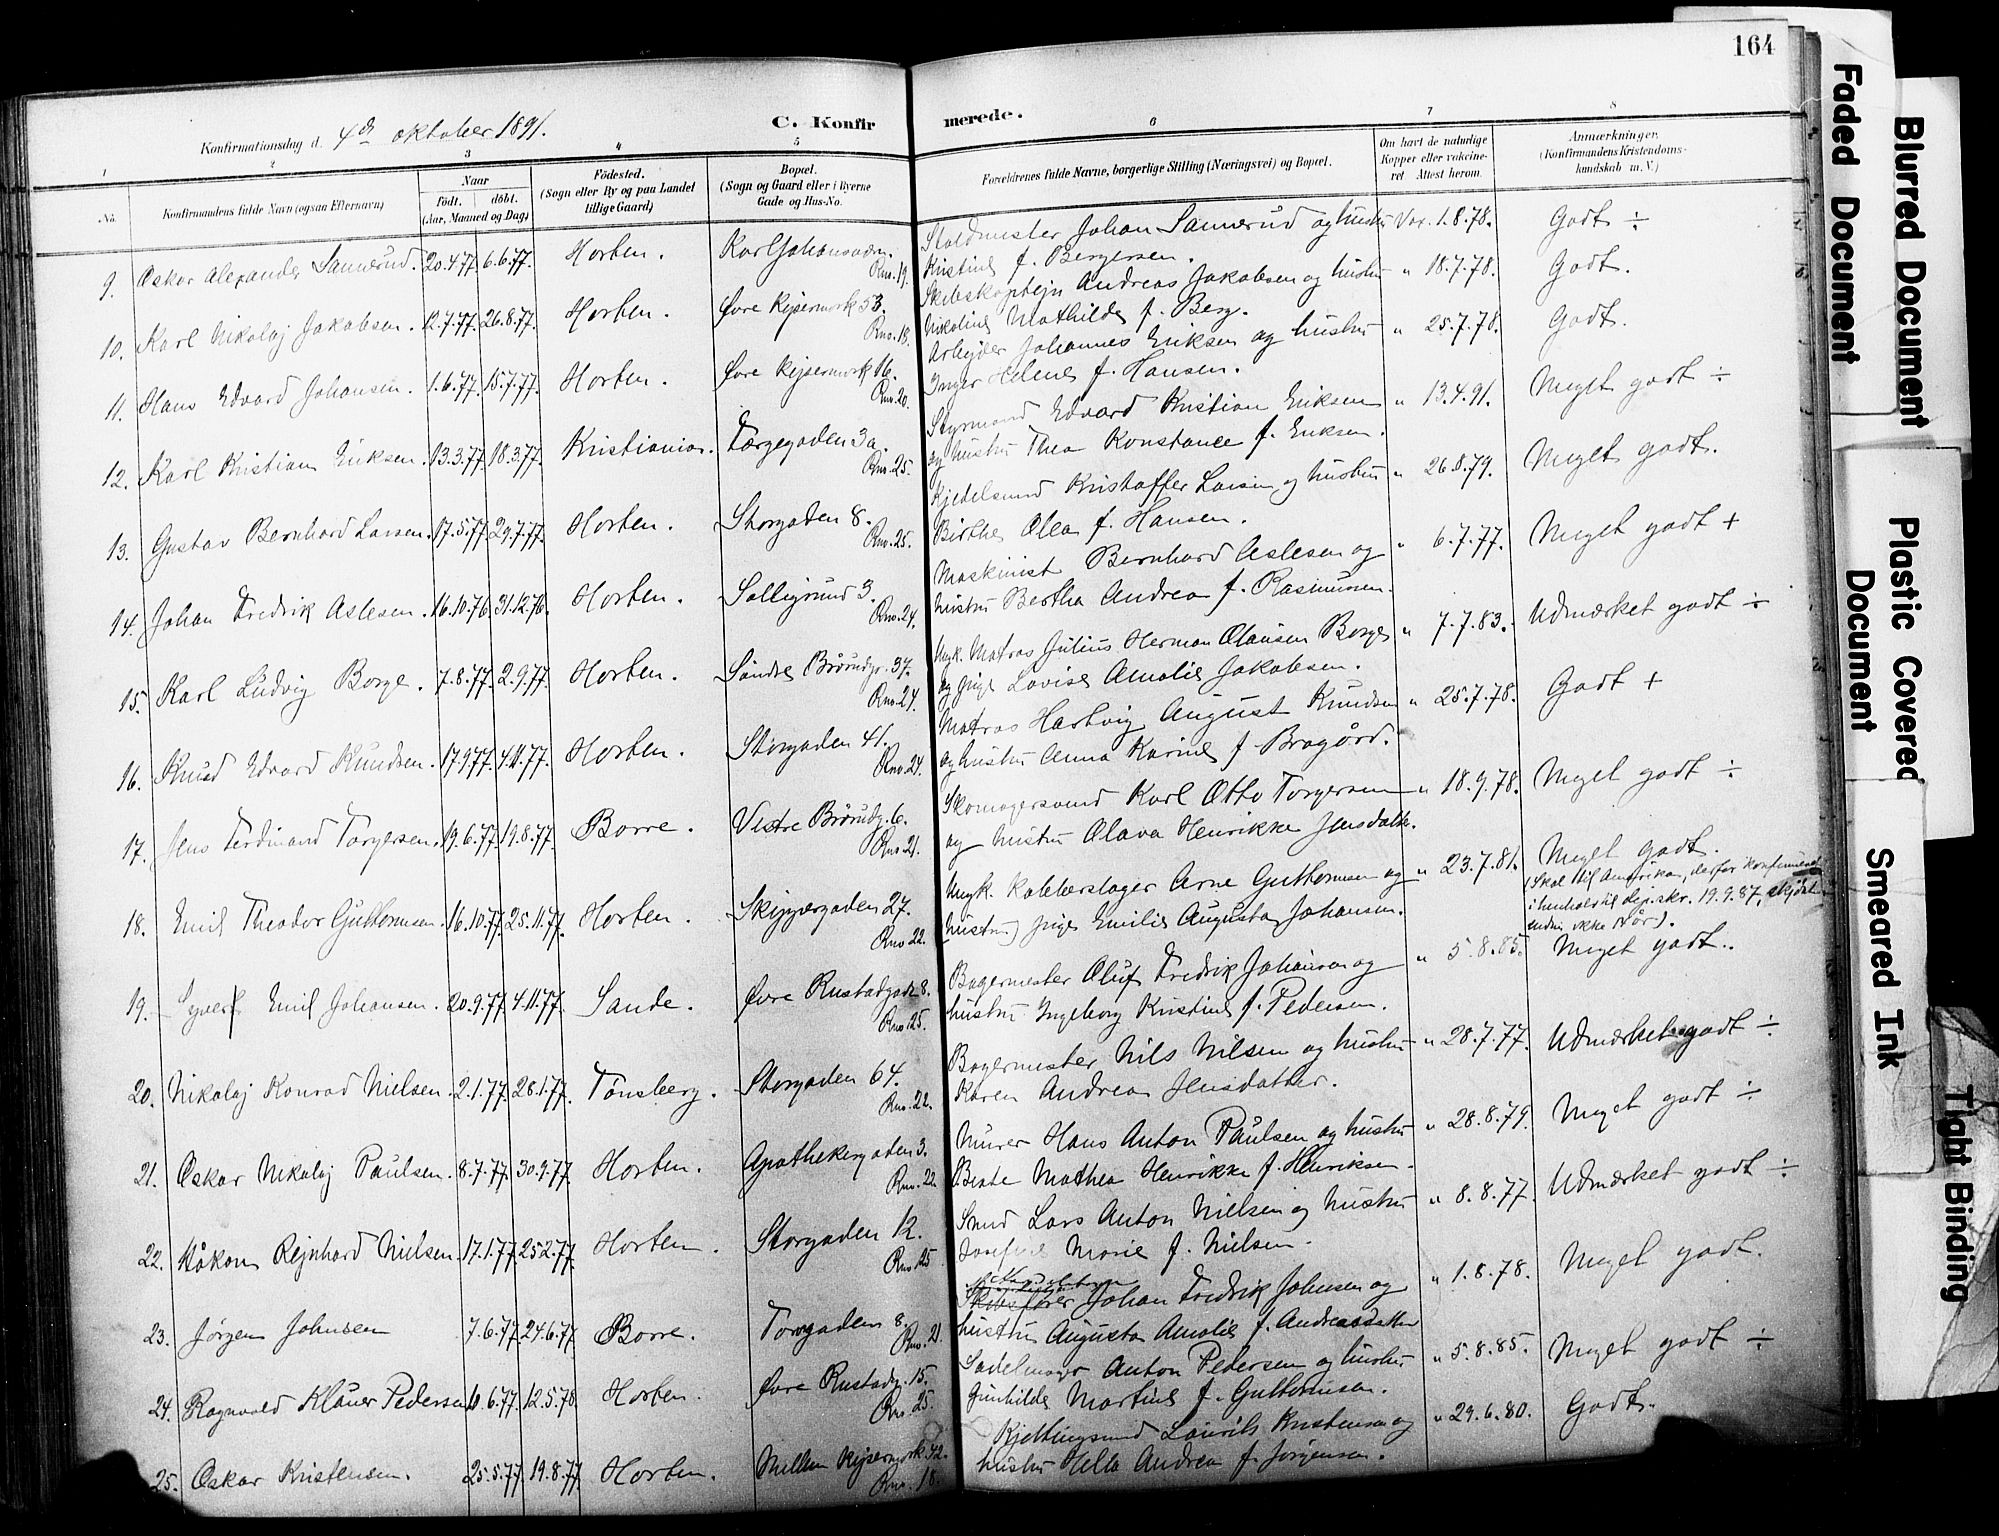 164
Konfirmationsdag d. 4de oktober 1891.
C. Konfir
merede.
1 2 3 4 5 6 7 8
No.
Konfirmandens fulde Navn (ogsaa Efternavn)
Naar
født. døbt.
(Aar, Maaned og Dag)
Fødested.
(Sogn eller By og paa Landet
tillige Gaard)
Bopæl.
(Sogn og Gaard eller i Byerne
Gade og Hus-No.
Forældrenes fulde Navne, borgerlige Stilling (Næringsvei) og Bopæl.
Om havt de naturlige
Kopper eller vakcine-
ret Attest herom.
Anmærkninger.
(Konfirmandens Kristendoms-
kundskab m. V.)
9. Oskar Alexander Sannerud. 20.4.77 6.6.77. Horten. Karl Johansvdn. Rno. 19. Staldmester Johan Sannerud og hustru Vax. 1.8.78. Godt ÷
Kristine f. Bergersen.
10. Karl Nikolaj Jakobsen. 12.7.77. 26.8.77. Horten. Øvre Kejsermark 53. Rno. 18. Skibskaptejn Andreas Jakobsen og hustru " 18.7.78. Godt.
Nikoline Mathilde f. Berg.
11. Hans Edvard Johansen. 1.6.77. 15.7.77. Horten. Øvre Kejsermark 16. Rno. 20. Arbejder Johannes Eriksen og hustru " 25.7.78. Godt.
Inger Helene f. Hansen.
12. Karl Kristian Eriksen. 13.3.77. 18.3.77. Kristiania. Færgegaden 3a. Rno. 25. Styrmand Edvard Kristian Eriksen " 13.4.91. Meget godt ÷
og hustru Thea Konstance f. Eriksen.
13. Gustav Bernhard Larsen. 17.5.77. 29.7.77. Horten. Storgaden 8. Rno. 25. Kjedelsmed Kristoffer Larsen og hustru " 26.8.79. Meget godt.
Birthe Olea f. Hansen.
14. Johan Fredrik Aslesen. 16.10.76. 31.12.76. Horten. Solligrund 3. Rno. 24. Maskinist Bernhard Aslesen og " 6.7.77. Meget godt +
hustru Bertha Andrea f. Rasmussen.
15. Karl Ludvig Borge. 7.8.77. 2.9.77. Horten. Søndre Brårudgr. 37. Rno. 24. Ungk. Matros Julius Herman Olausen Borge " 7.7.83. Udmærket godt ÷
og pige Lovise Amalie Jakobsen.
16. Knud Edvard Knudsen. 17.9.77. 4.11.77. Horten. Storgaden 41. Rno. 24. Matros Hartvig August Knudsen " 25.7.78. Godt +
og hustru Anna Karine f. Bragård.
17. Jens Ferdinand Torgersen. 19.6.77. 19.8.77. Borre. Vestre Brårudg. 6. Rno. 21. Skomagersvend Karl Otto Torgersen " 18.9.78. Meget godt ÷
og hustru Olava Henrikke Jensdatter.
18. Emil Theodor Guttormsen. 16.10.77. 25.11.77. Horten. Skippergaden 27. Rno 22. Ungk. Kobberslager Arne Guttormsen og " 23.7.81. Meget godt.
hustru) pige Emilie Augusta Johansen. (Skal til Amerika, derfor konfirmeret
i henhold til dep.skr. 19.9.87, skjønt
endnu ikke 14 år).
19. Syver Emil Johansen. 20.9.77. 4.11.77. Sande. Øvre Rustadgade 8. Rno. 25. Bagermester Oluf Fredrik Johansen og " 5.8.85. Meget godt.
hustru Ingeborg Kristine f. Pedersen.
20. Nikolaj Konrad Nielsen. 2.1.77. 28.1.77. Tønsberg. Storgaden 64. Rno. 22. Bagermester Nils Nilsen og hustru " 28.7.77. Udmærket godt ÷
Karen Andrea Jensdatter.
21. Oskar Nikolaj Paulsen. 8.7.77. 30.9.77. Horten. Apothekergaden 3. Rno. 22. Murer Hans Anton Paulsen og hustru " 28.8.79. Meget godt ÷
Beate Mathea Henrikke f. Henriksen.
22. Håkon Rejnhard Nielsen. 17.1.77. 25.2.77. Horten. Storgaden 12. Rno 25 Smed Lars Anton Nielsen og hustru " 8.8.77. Udmærket godt ÷
Josefine Marie f. Nielsen.
23. Jørgen Johnsen 7.6.77. 24.6.77. Borre. Torvgaden 8. Rno. 21. Skibsfører Johan Fredrik Johnsen og " 1.8.78. Meget godt.
hustru Augusta Amalie f. Andreasdatter
24. Ragnvald Klauer Pedersen 10.6.77. 12.5.78. Horten. Øvre Rustadg. 15. Rno. 25. Sadelmager Anton Pedersen og hustru " 5.8.85. Meget godt ÷
Gunhilde Martine f. Guttormsen.
25. Oskar Kristensen. 25.5.77. 19.8.77. Horten. Mellem Kejsermark 42. Rno. 18. Kjettingsmed Laurits Kristensen og " 29.6.80. Godt.
hustru Helle Andrea f. Jørgensen.
Faded Document
Blurred Document
Plastic Covered
Document
Smeared Ink
Tight Binding